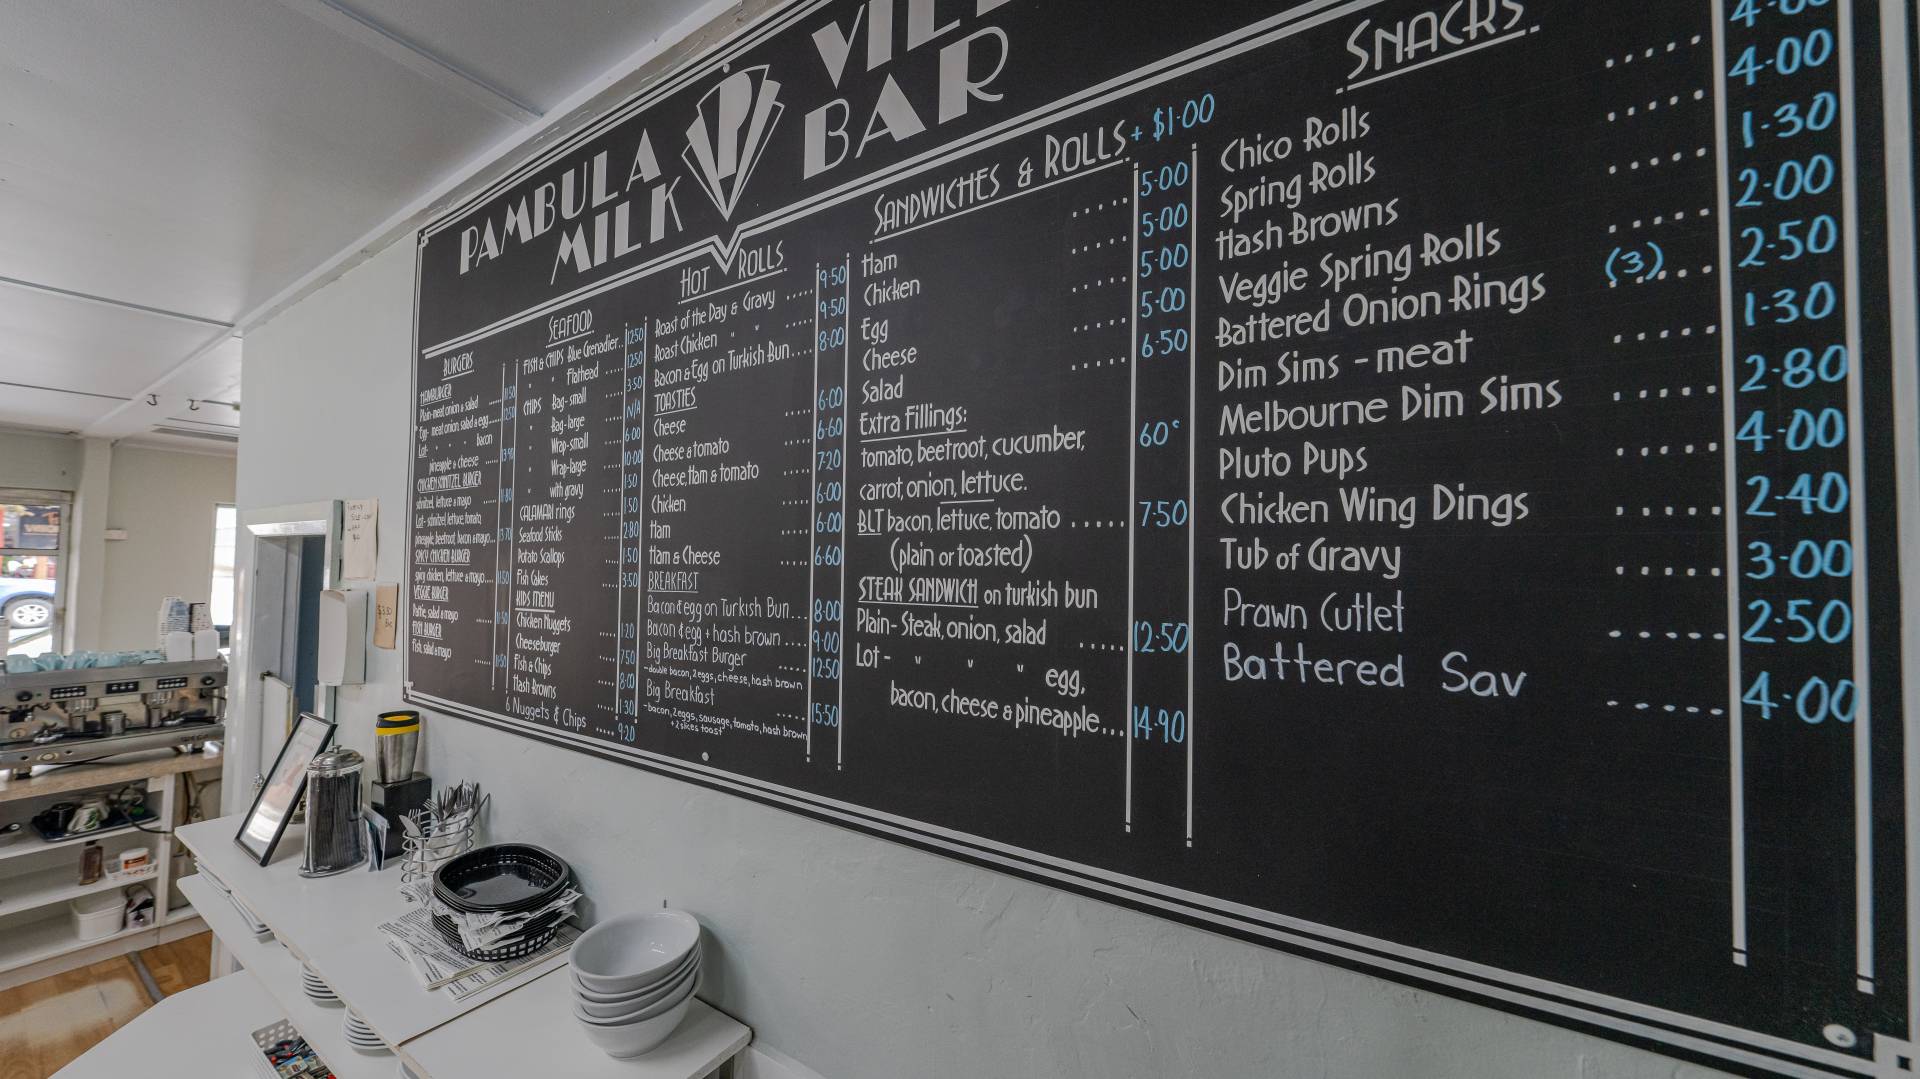 PAMBULA VILL
MILK BAR
P
BURGERS
HAMBURGER
Plain-meat, onion & salad ...... 11·50
Egg- meat, onion, salad & egg..... 12·50
Lot- " " " bacon
pineapple & cheese ......
CHICKEN SCHNITZEL BURGER
schnitzel, lettuce & mayo ......
Lot- schnitzel, lettuce, tomato,
pineapple, beetroot, bacon & mayo...
SPICY CHICKEN BURGER
spicy chicken, lettuce & mayo....
VEGGIE BURGER
Pattie, salad & mayo ......
FISH BURGER
Fish, salad & mayo ......
SEAFOOD
FISH & CHIPS Blue Grenadier.. 12·50
" " Flathead ..... 12·50
CHIPS Bag-small ..... 3·50
" Bag-large ..... N/A
" Wrap-small ..... 6·00
" Wrap-large ..... 10·00
" with gravy ..... 1·50
CALAMARI rings ..... 1·50
Seafood Sticks ..... 2·80
Potato Scallops ..... 1·50
Fish Cakes ..... 3·50
KIDS MENU
Chicken Nuggets ..... 1·20
Cheeseburger ..... 7·50
Fish & Chips ..... 8·00
Hash Browns ..... 1·30
6 Nuggets & Chips ..... 9·20
HOT ROLLS
Roast of the Day & Gravy ..... 9·50
Roast Chicken " " ..... 9·50
Bacon & Egg on Turkish Bun.... 8·00
TOASTIES
Cheese ..... 6·00
Cheese & tomato ..... 6·60
Cheese, Ham & tomato ..... 7·20
Chicken ..... 6·00
Ham ..... 6·00
Ham & Cheese ..... 6·60
BREAKFAST
Bacon & egg on Turkish Bun... 8·00
Bacon & egg + hash brown .... 9·00
Big Breakfast Burger ..... 12·50
-double bacon, 2 eggs, cheese, hash brown
Big Breakfast ..... 15·50
-bacon, 2 eggs, sausage, tomato, hash brown
+ 2 slices toast
SANDWICHES & ROLLS + $1·00
Ham ..... 5·00
Chicken ..... 5·00
Egg ..... 5·00
Cheese ..... 5·00
Salad ..... 6·50
Extra Fillings:
tomato, beetroot, cucumber, 60c
carrot, onion, lettuce.
BLT bacon, lettuce, tomato ..... 7·50
(plain or toasted)
STEAK SANDWICH on turkish bun
Plain- Steak, onion, salad ..... 12·50
Lot - " " " egg,
bacon, cheese & pineapple... 14·90
SNACKS
Chico Rolls ..... 4·00
Spring Rolls ..... 4·00
Hash Browns ..... 1·30
Veggie Spring Rolls ..... 2·00
Battered Onion Rings (3)..... 2·50
Dim Sims - meat ..... 1·30
Melbourne Dim Sims ..... 2·80
Pluto Pups ..... 4·00
Chicken Wing Dings ..... 2·40
Tub of Gravy ..... 3·00
Prawn Cutlet ..... 2·50
Battered Sav ..... 4·00